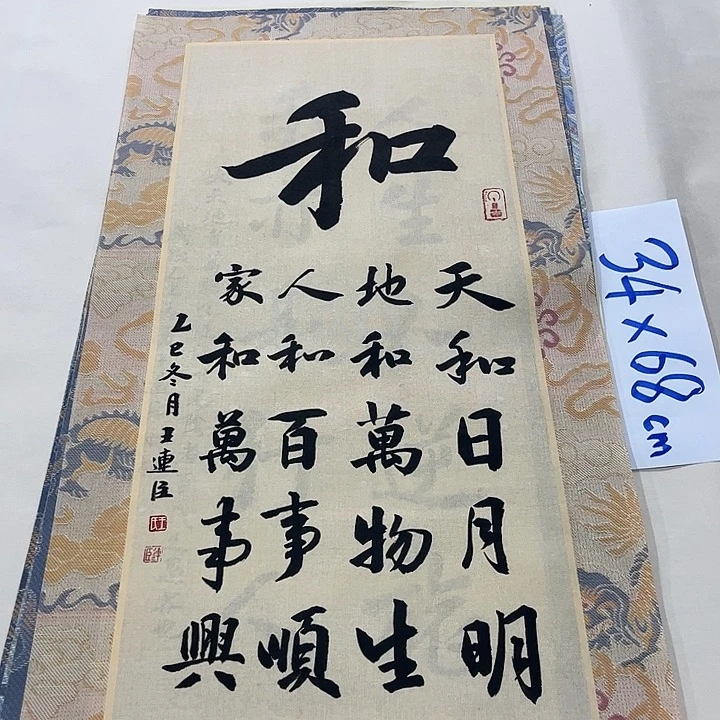 和
天和日月明
地和萬物生
人和百事順
家和萬事興
乙巳冬月王連臣
34×68cm